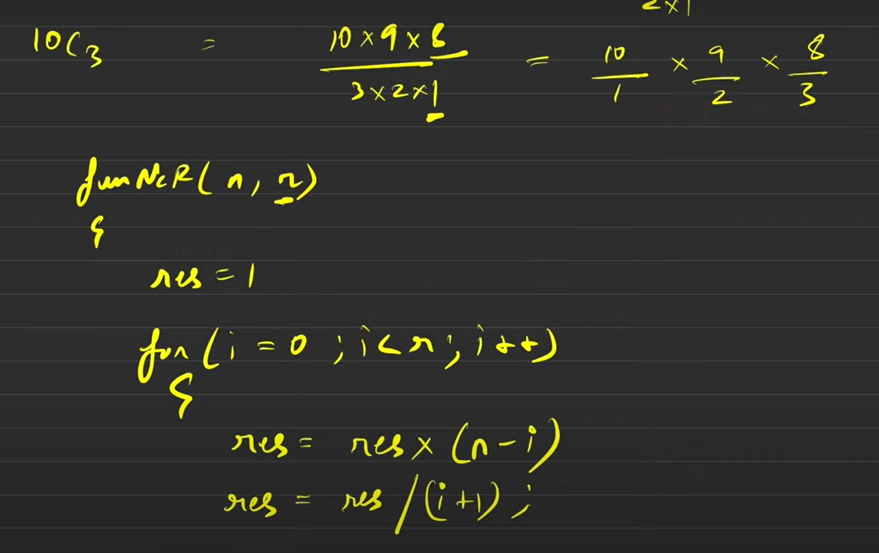 2x1
10C3 = 10 x 9 x 8 / 3 x 2 x 1 = 10/1 x 9/2 x 8/3
funNcR(n, r)
{
res = 1
for(i = 0 ; i < r ; i++)
{
res = res x (n - i)
res = res / (i + 1) ;